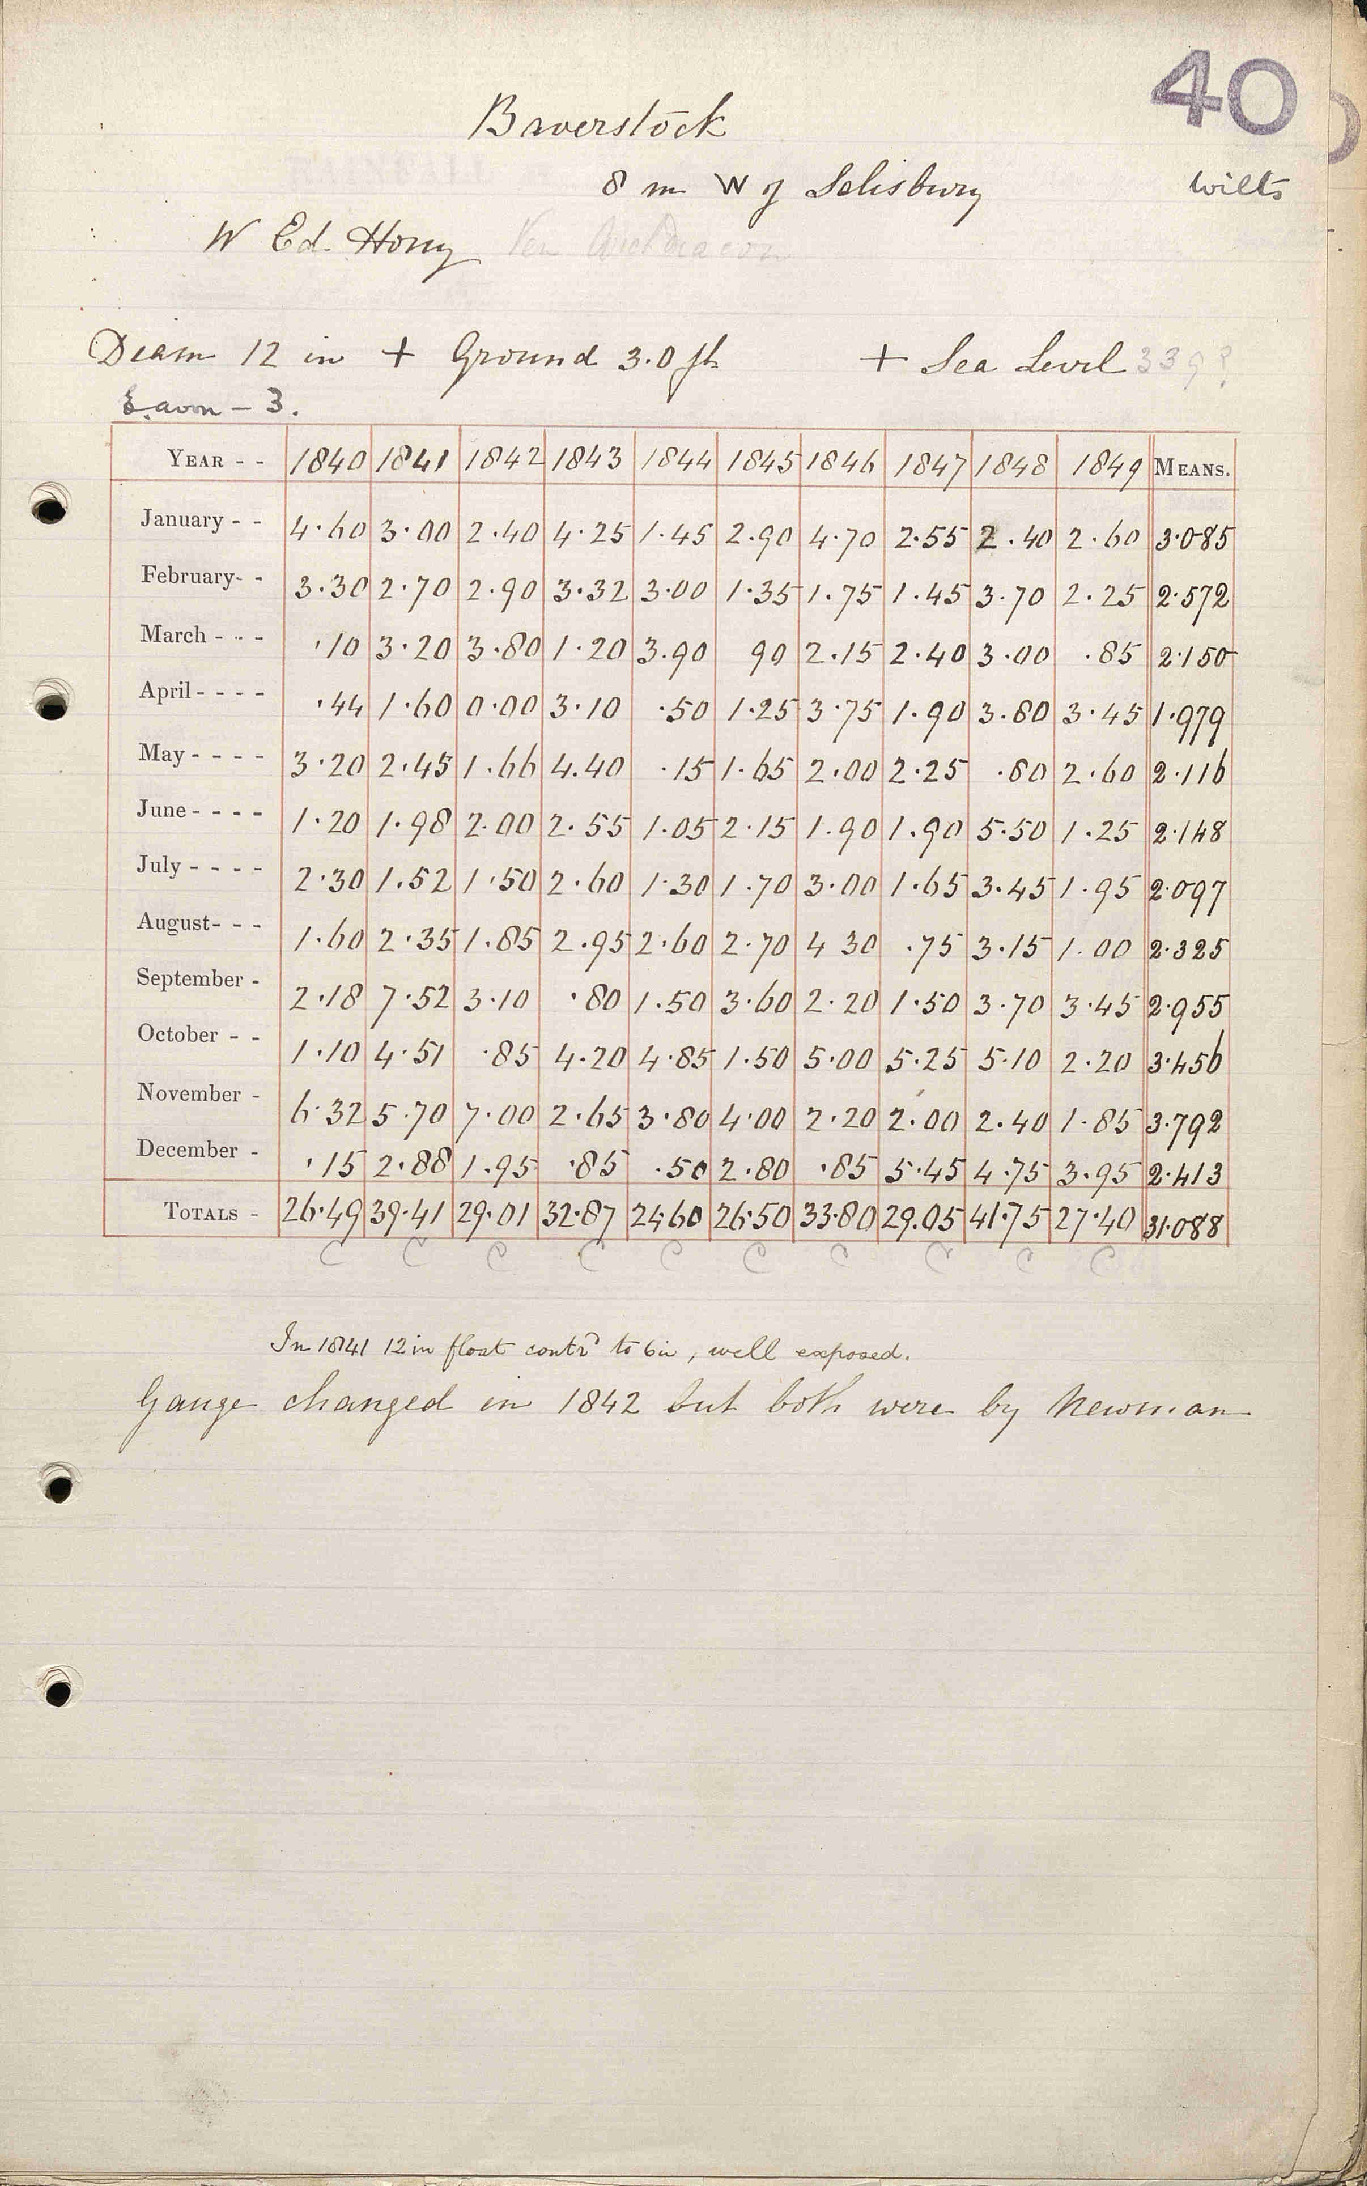 40
Baverstock
8 m W of Salisbury Wilts
W Ed. Hony Ven Archdeacon
Diam 12 in + Ground 3.0 ft + Sea Level 339?
E. avon - 3.
YEAR - - 1840 1841 1842 1843 1844 1845 1846 1847 1848 1849 MEANS.
January - - 4.60 3.00 2.40 4.25 1.45 2.90 4.70 2.55 2.40 2.60 3.085
February- - 3.30 2.70 2.90 3.32 3.00 1.35 1.75 1.45 3.70 2.25 2.572
March - - - .10 3.20 3.80 1.20 3.90 90 2.15 2.40 3.00 .85 2.150
April - - - - .44 1.60 0.00 3.10 .50 1.25 3.75 1.90 3.80 3.45 1.979
May - - - - 3.20 2.45 1.66 4.40 .15 1.65 2.00 2.25 .80 2.60 2.116
June - - - - 1.20 1.98 2.00 2.55 1.05 2.15 1.90 1.90 5.50 1.25 2.148
July - - - - 2.30 1.52 1.50 2.60 1.30 1.70 3.00 1.65 3.45 1.95 2.097
August- - - 1.60 2.35 1.85 2.95 2.60 2.70 4 30 .75 3.15 1.00 2.325
September - 2.18 7.52 3.10 .80 1.50 3.60 2.20 1.50 3.70 3.45 2.955
October - - 1.10 4.51 .85 4.20 4.85 1.50 5.00 5.25 5.10 2.20 3.456
November - 6.32 5.70 7.00 2.65 3.80 4.00 2.20 2.00 2.40 1.85 3.792
December - .15 2.88 1.95 .85 .50 2.80 .85 5.45 4.75 3.95 2.413
TOTALS - 26.49 39.41 29.01 32.87 24.60 26.50 33.80 29.05 41.75 27.40 31.088
C C C C C C C C C C
In 1841 12 in float contrd to 6 in, well exposed.
Gauge changed in 1842 but both were by Newman